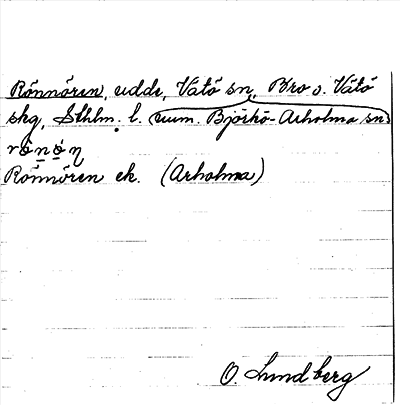 Rönnören, udde, Vätö sn, Bro o. Vätö
skg, Sthlm. l. num. Björkö-Arholma sn.
Rönnören ek. (Arholma)
O. Lundberg